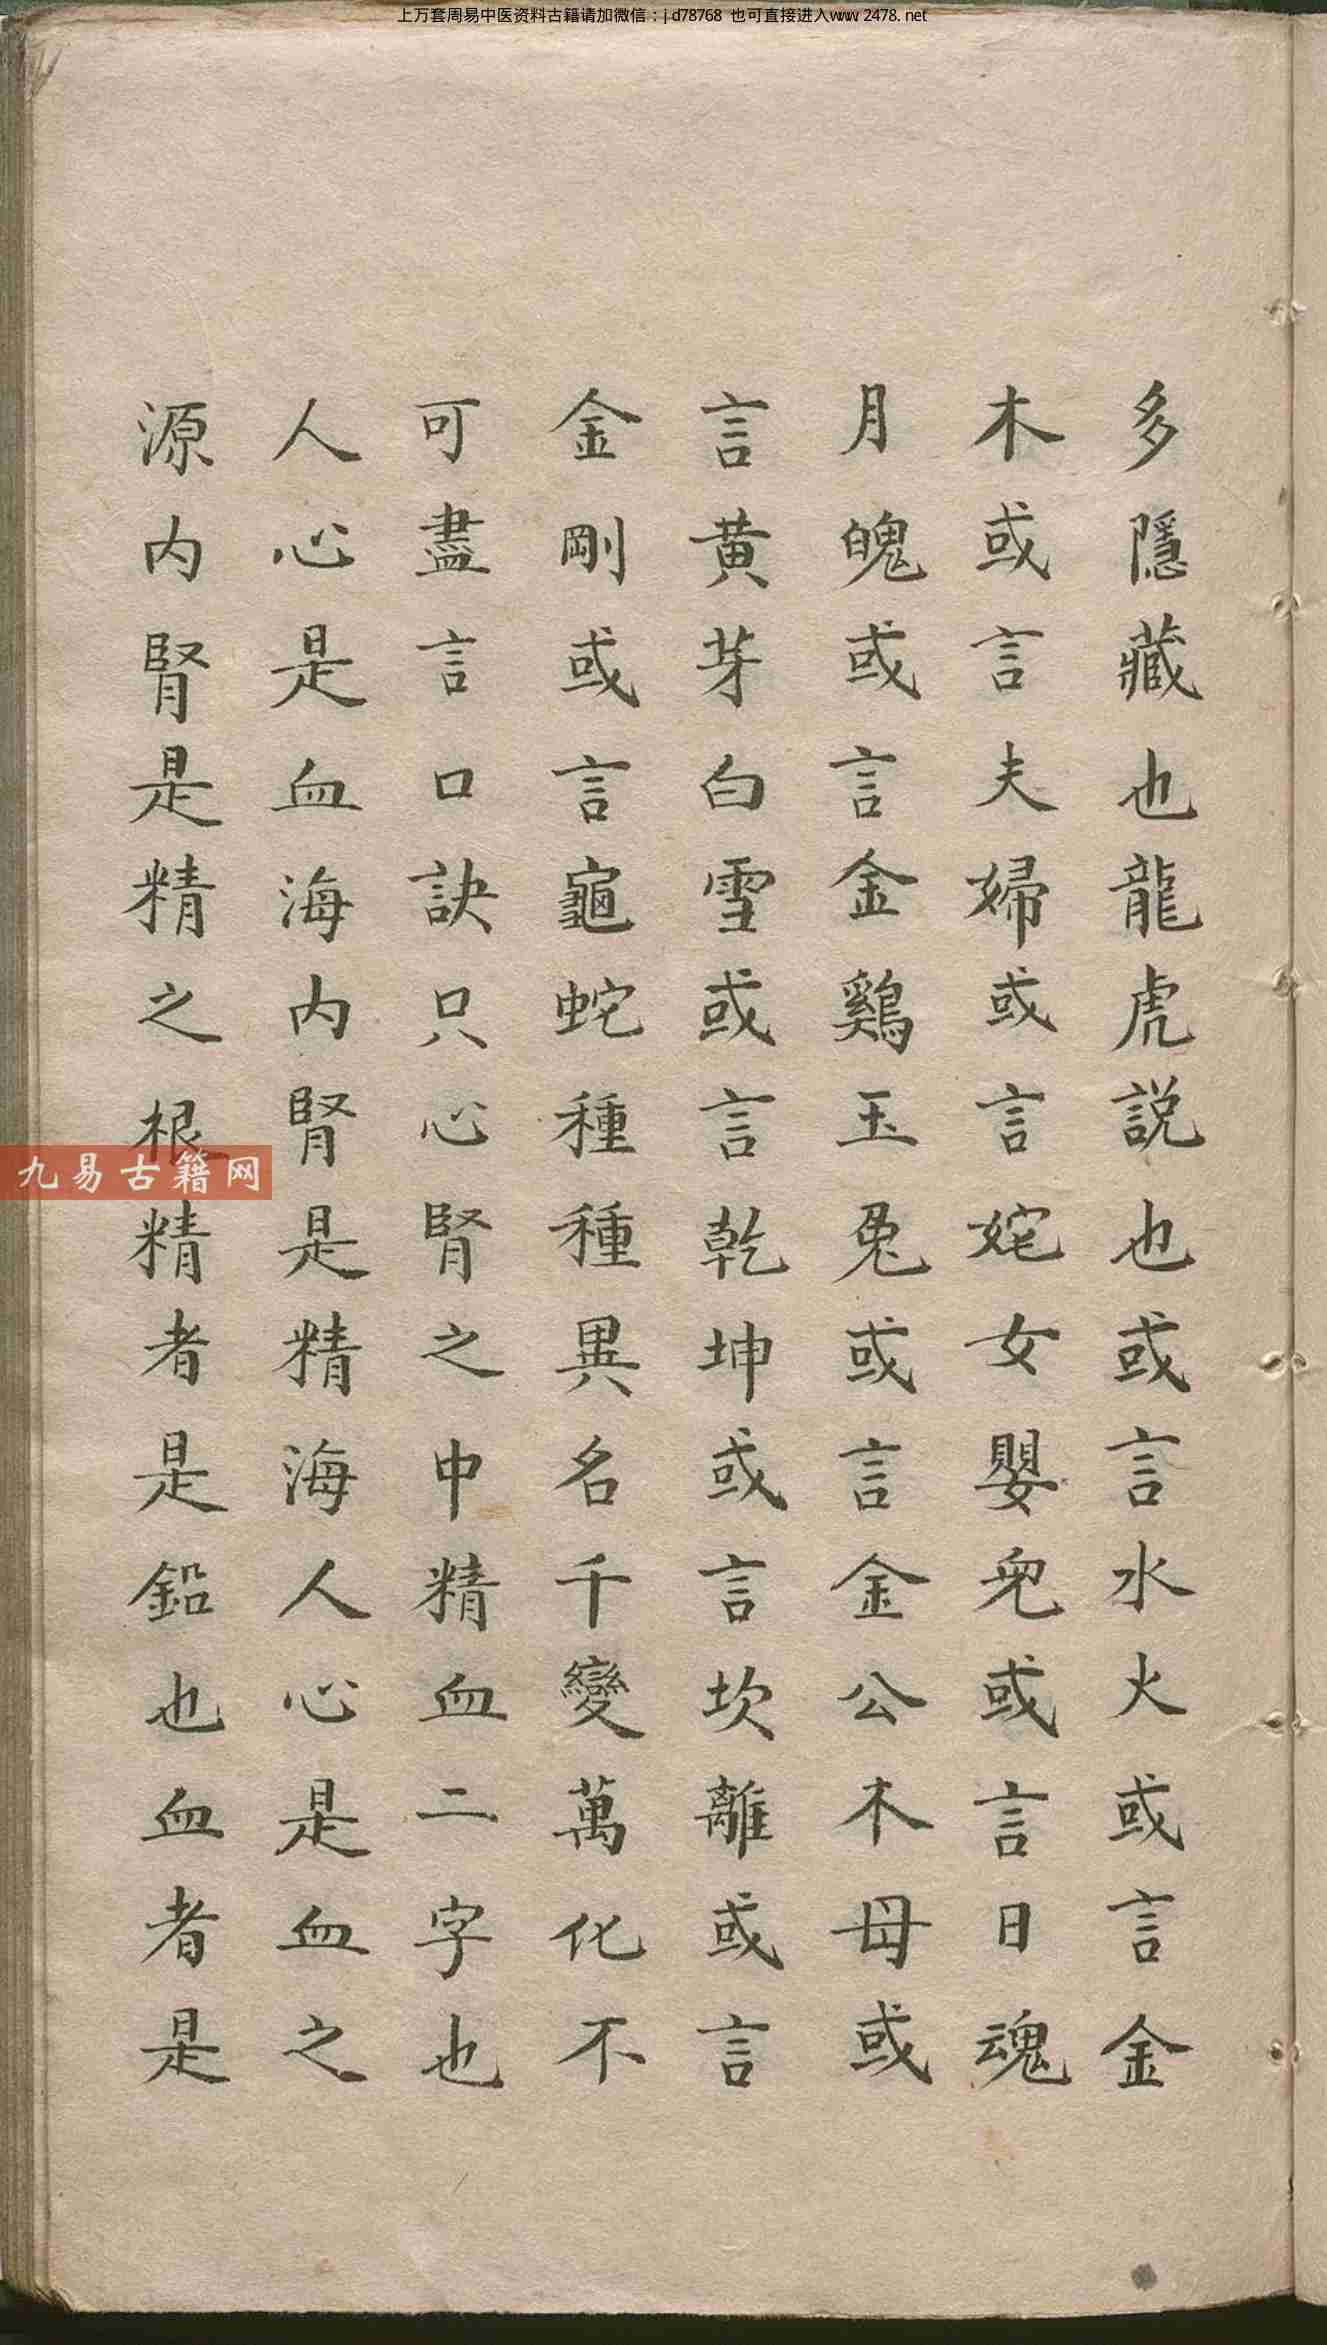 上万套周易中医资料古籍请加微信：jd78768 也可直接进入www2478.net
多隱藏也龍虎說也或言水火或言金
木或言夫婦或言姹女嬰兒或言日魂
月魄或言金鷄玉兔或言金公木母或
言黄芽白雪或言乾坤或言坎離或言
金剛或言龜蛇種種異名千變萬化不
可盡言口訣只心腎之中精血二字也
人心是血海内腎是精海人心是血之
源内腎是精之根精者是鉛也血者是
九易古籍网